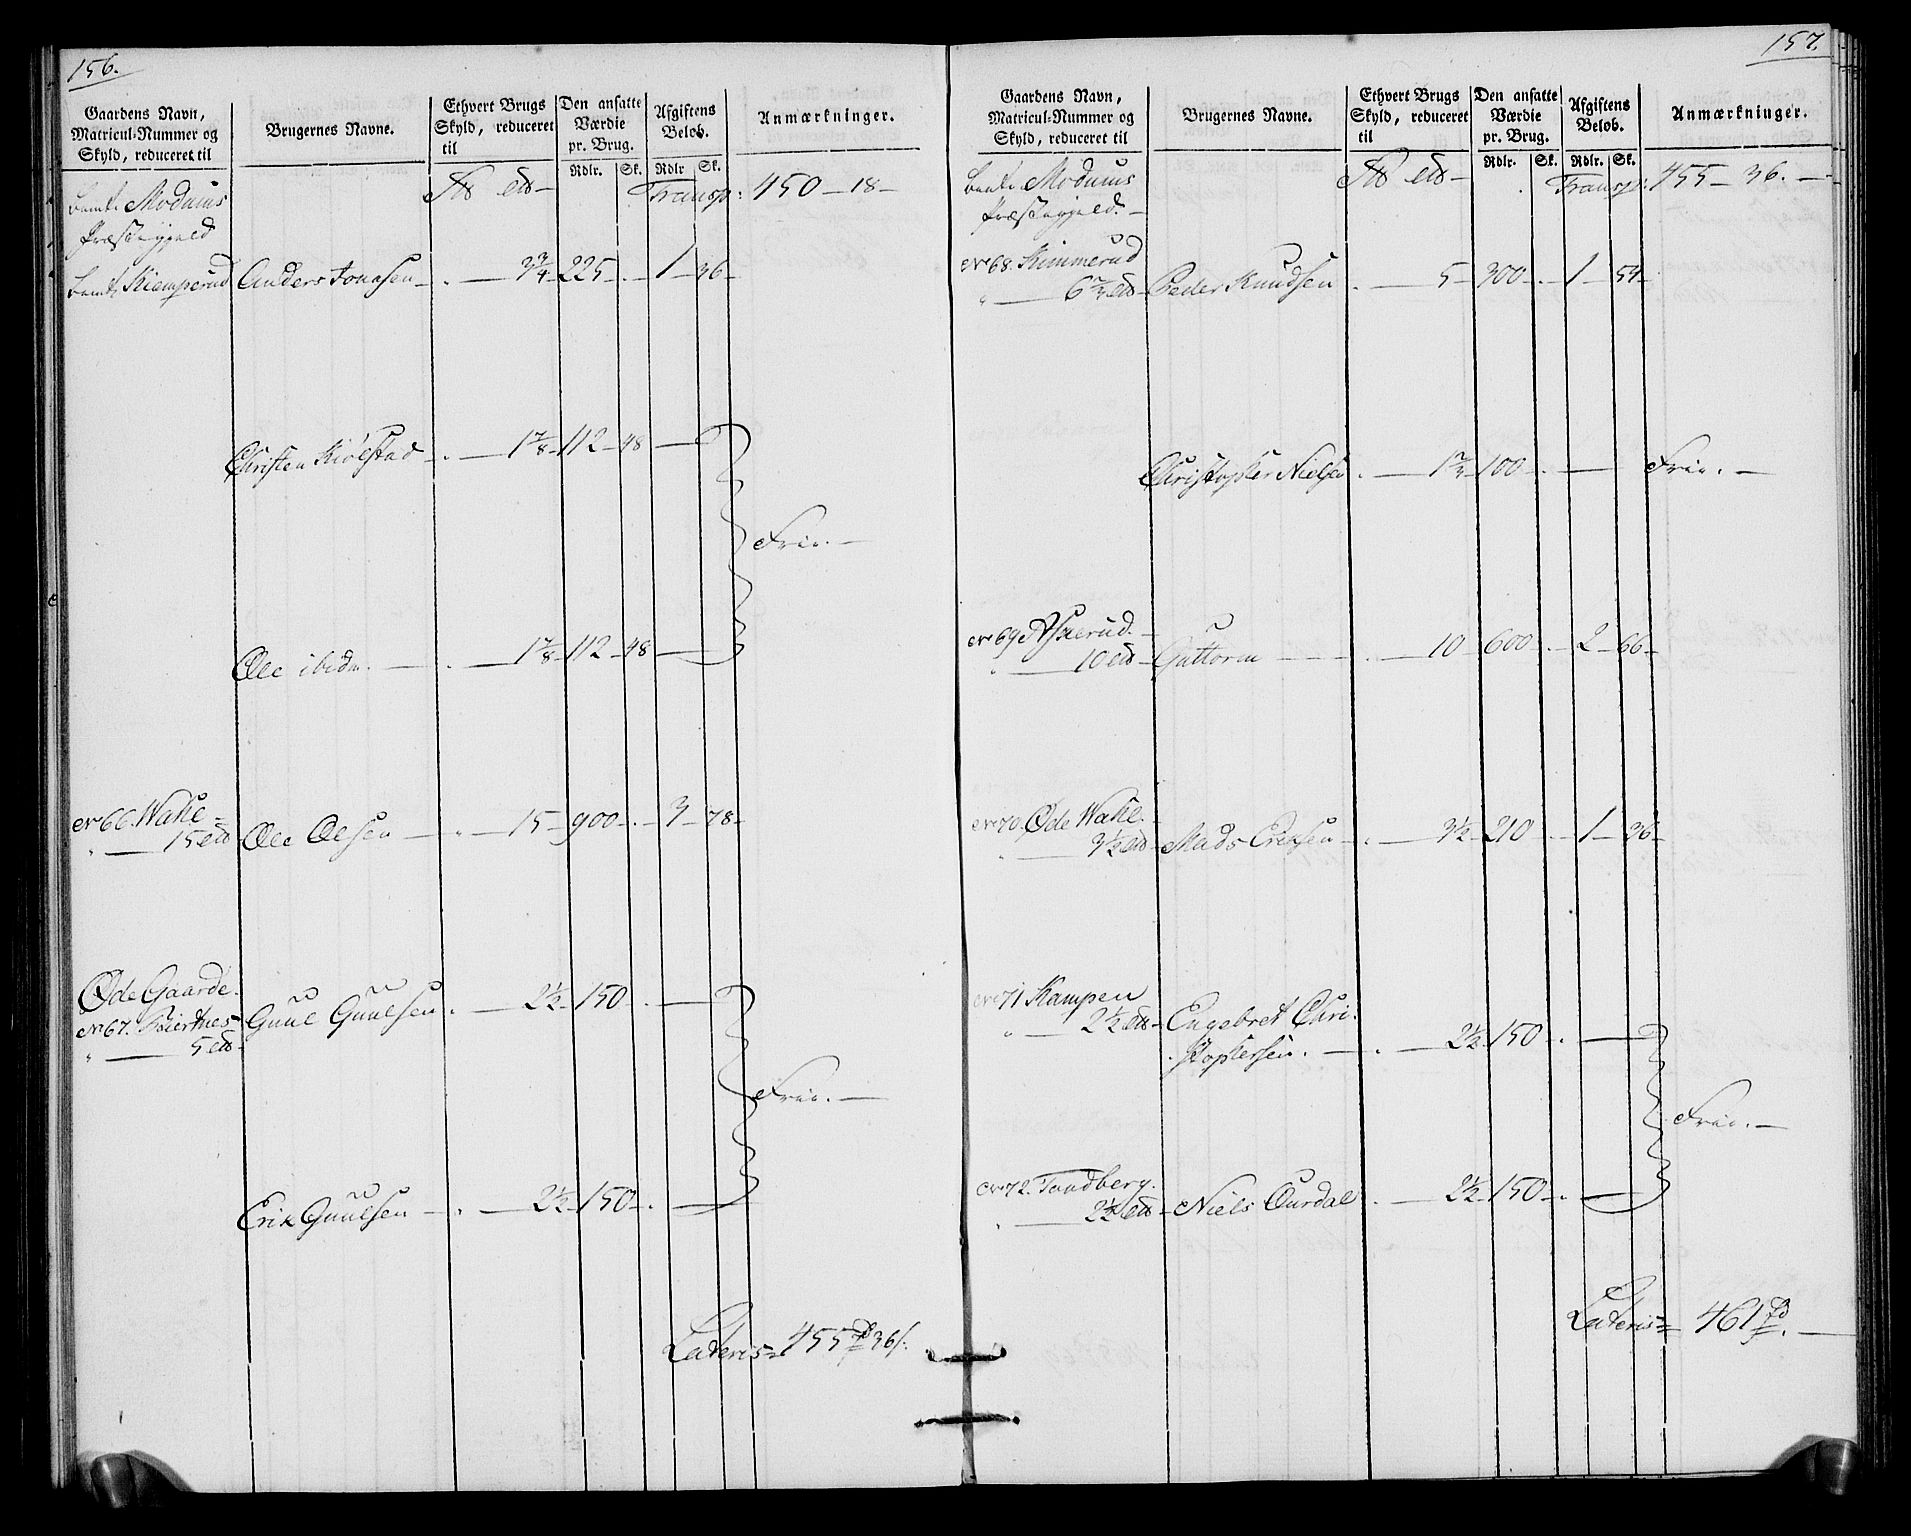 156.
Gaardens Navn,
Matricul-Nummer og
Skyld, reduceret til
Brugernes Navne.
Ethvert Brugs
Skyld, reduceret
til
Den ansatte
Værdie
pr. Brug.
Rdlr. Sk.
Afgiftens
Beløb.
Rdlr Sk.
Anmærkninger.
Transp: 450 - 18 -
Modums
Præstegjeld
Kiemperud Anders Jonsen - . - 3 3/4 - 225 - . - 1 - 36 -
Christen Kiølstad - . - 1 7/8 - 112 - 48 -
Frie. -
Ole ibidm. - . - 1 7/8 - 112 - 48 -
No 66. Wake -
15 Ole Olsen - . - 15 - 900 - . - 3 - 78 -
Øde Gaarde.
No 67.
5
Guul Guulsen . - 2 1/2 - 150 - . -
Frie. -
Erik Guulsen - . - 2 1/2 - 150 - . -
Lateris = 455 36
157.
Gaardens Navn,
Matricul-Nummer og
Skyld, reduceret til
Brugernes Navne.
Ethvert Brugs
Skyld, reduceret
til
Den ansatte
Værdie
pr. Brug.
Rdlr. Sk.
Afgiftens
Beløb.
Rdlr. Sk.
Anmærkninger.
Transp: 455 - 36. -
Modums
Præstegjeld. -
No 68. Kimmerud
6 2/3 Peder Knudsen . - 5 - 300 - . - 1 - 54 -
Christopher Nielsen . - 1 2/3 - 100 - . - Frie. -
No 69
10 Guttorm - . - 10 - 600 - . - 2 - 66 -
No 70. Øde Wake. -
3 1/2 Mads Ericksen - . - 3 1/2 - 210 - . - 1 - 36 -
No 71 Kampen
2 1/2 Engebret Chri-
stophersen. - . - 2 1/2 - 150 - . -
Frie. -
No 72. Tandberg.
2 1/2 Niels Ourdal . - 2 1/2 - 150 - . -
Lateris = 461